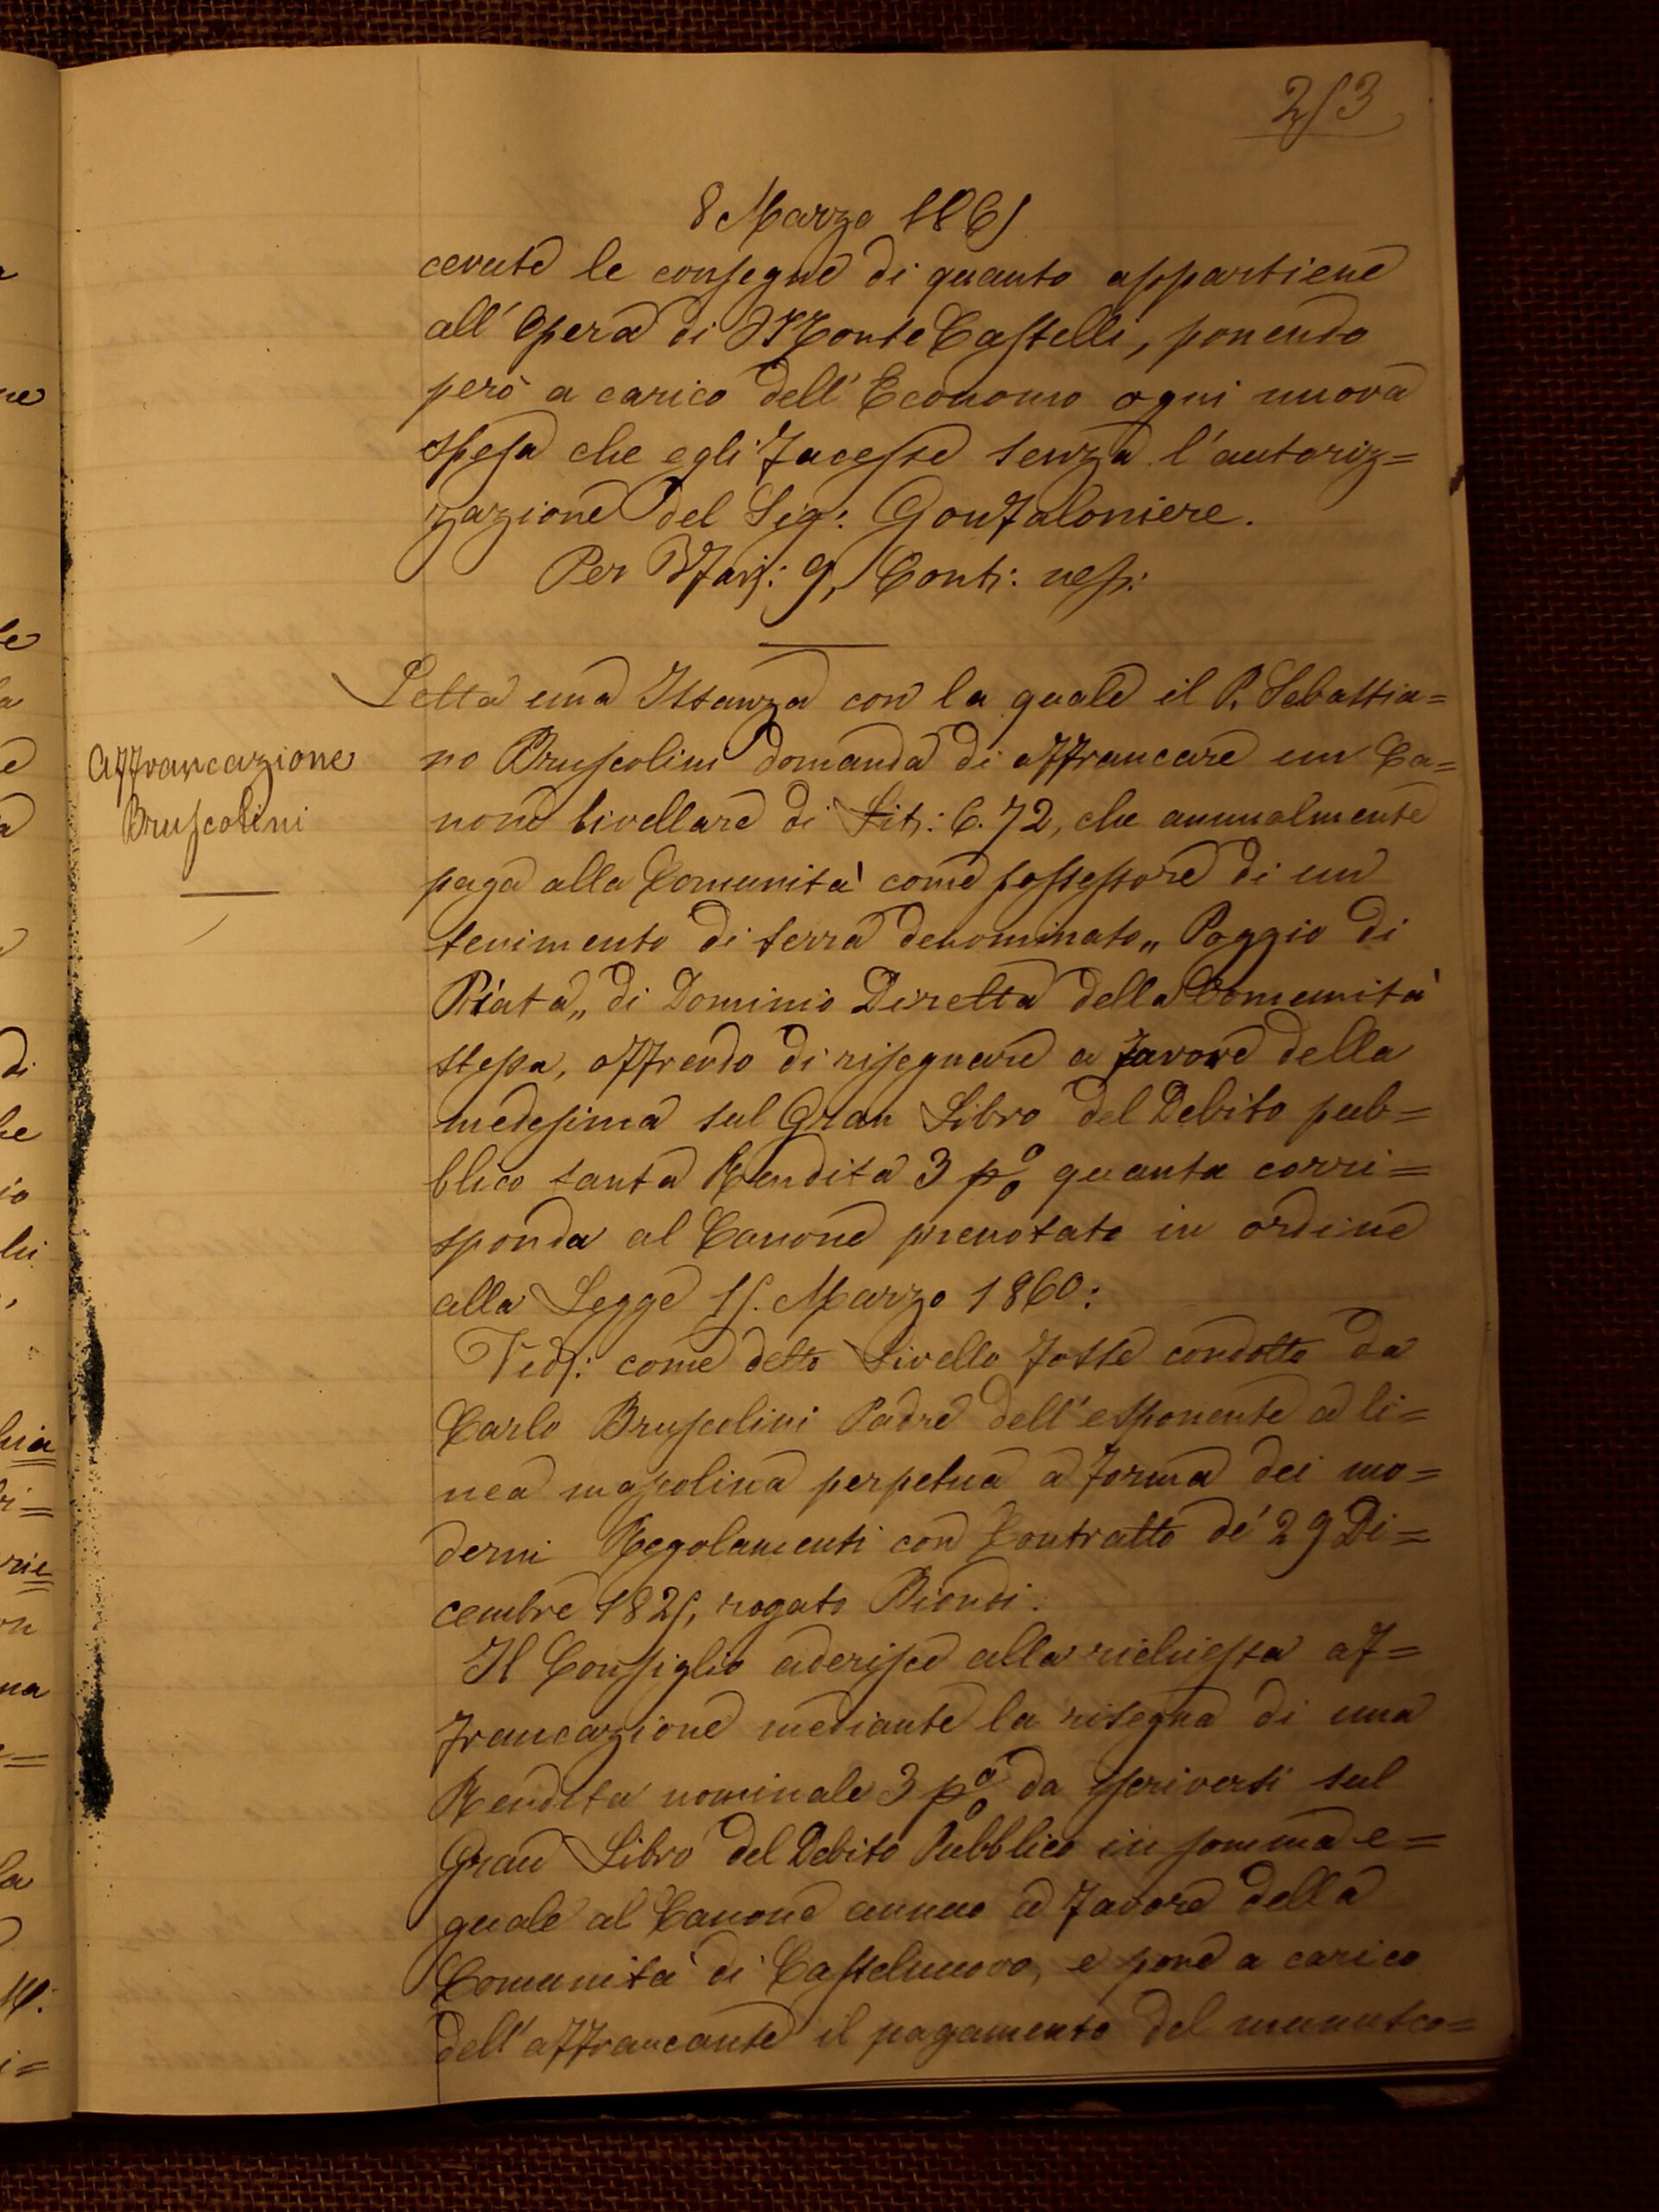 253
8 Marzo 1861
cevute le consegne di quanto appartiene
all'Opera di Monte Castelli, ponendo
però a carico dell'Economo ogni nuova
spesa che egli facesse senza l'autoriz=
zazione del Sig: Gonfaloniere.
Per Vfav: 9, Contr: ness:
Letta una Istanza con la quale il P. Sebastia=
no Bruscolini domanda di affrancare un Ca=
none livellare di Lit: 6.72, che annualmente
paga alla Comunità come possessore di un
tenimento di terra denominato „ Poggio di
Piata „ di Dominio Diretta della Comunità
stessa, offrendo di risegnare a favore della
medesima sul Gran Libro del Debito pub=
blico tanta Rendita 3 p% quanta corri=
sponda al Canone prenotato in ordine
alla Legge 15. Marzo 1860:
Veds: come detto Livello fosse condotto da
Carlo Bruscolini Padre dell'esponente a li=
nea mascolina perpetua a forma dei mo=
derni Regolamenti con Contratto de' 29 Di=
cembre 1825, rogato Biondi.
Il Consiglio aderisce alla richiesta af=
francazione mediante la risegna di una
Rendita nominale 3 p% da iscriversi sul
Gran Libro del Debito Pubblico in somma e=
guale al Canone annuo a favore della
Comunità di Castelnuovo, e pone a carico
dell'affrancante il pagamento del manutco=
Affrancazione
Bruscolini